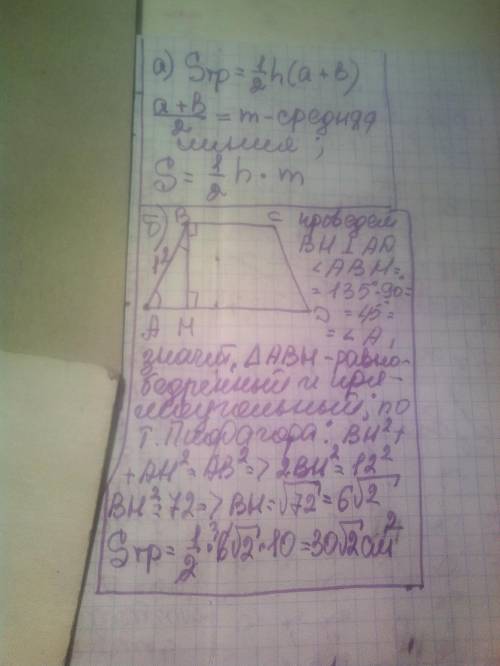 а) Sтр = 1/2 h(a+b)
a+b/2 = m-средняя
линия;
S = 1/2 h · m
б) B C проведем
BH ⊥ AD
12 ∠ABH =
= 135°-90=
A H D = 45° =
= ∠A,
значит, ΔABH-равно-
бедренный и пря-
моугольный; по
т. Пифагора: BH²+
+AH²=AB²=> 2BH²=12²
BH²=72=> BH=√72=6√2
Sтр = 1/2 · 6√2 · 10 = 30√2 см²